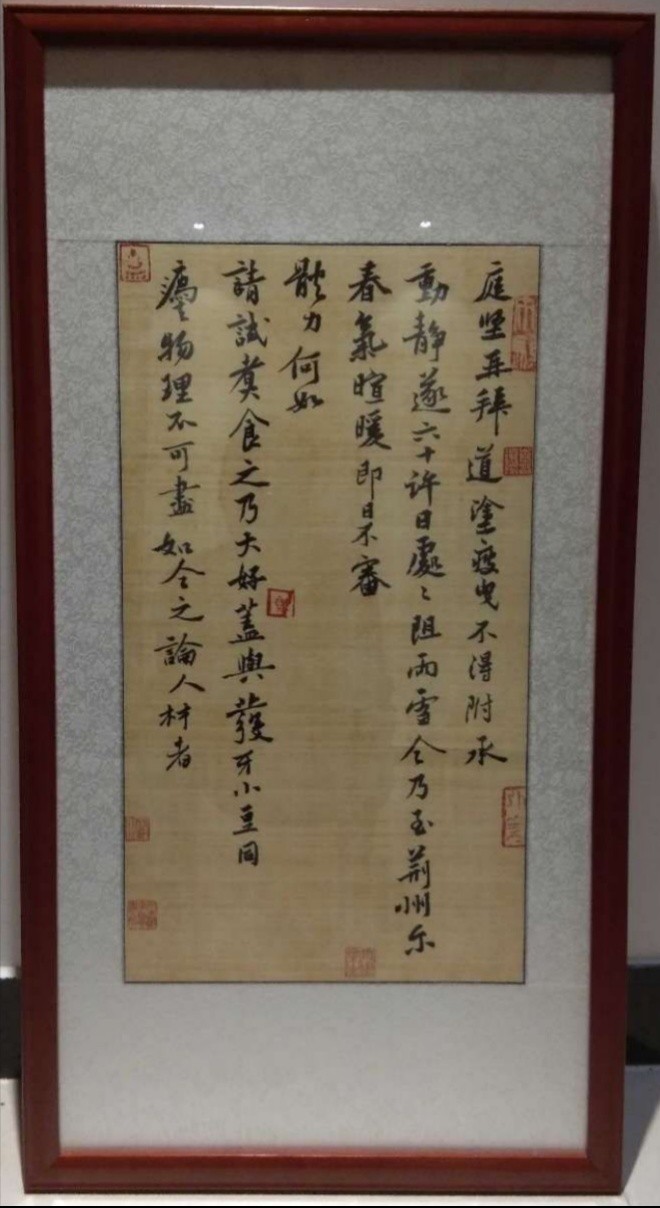 庭堅再拜道塗疲曳不得附承
動靜遂六十許日處〻阻雨雪今乃至荆州尓
春氣暄暖即日不審
體力何如
請試煑食之乃大好蓋與發牙小豆同
物理不可盡如今之論人材者